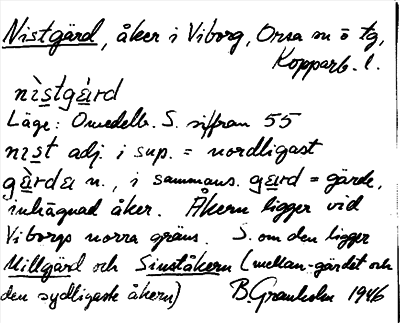 Nistgärd, åker i Viborg, Orsa sn o tg,
Kopparb. l.
nìstgàrd
Läge: Omedelb. S. siffran 55
nist adj. i sup. = nordligast
gàrda n., i sammans. gard = gärde,
inhägnad åker. Åkern ligger vid
Viborgs norra gräns. S. om den ligger
Millgjärd och Sinståkern (mellan-gärdet och
den sydligaste åkern) B. Granholm 1946